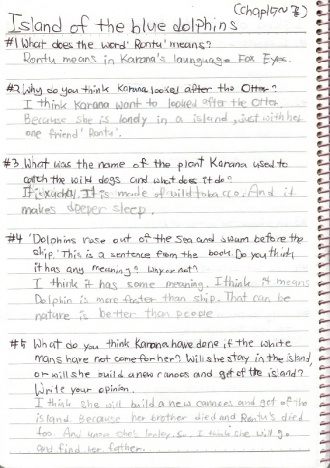 (Chap15~ 3)
Island of the blue dolphins
#1 What does the word 'Rontu' means?
Rontu means in Karana's launguage Fox Eyes.
#2 Why do you think Karana looked after the Otter?
I think Karana want to looked after the Otter.
Because she is lonely in a island, just with her
one friend 'Rontu'.
#3 What was the name of the plant Karana used to
catch the wild dogs and what does it do?
It is xuchal. It is made of wild tobacco. And it
makes deeper sleep.
#4 'Dolphins rose out of the sea and swam before the
ship.' This is a sentence from the book. Do you think
it has any meaning? Why or not?
I think it has some meaning. I think it means
Dolphin is more faster than ship. That can be
nature is better than people
#5 What do you think Karana have done if the white
mans have not come for her? Will she stay in the island,
or will she build a new canoes and get of the island?
Write your opinion.
I think she will build a new cannoes and get of the
island. Because her brother died and Rontu's died
too. And now she's lonley. so, I think she will go
and find her father.